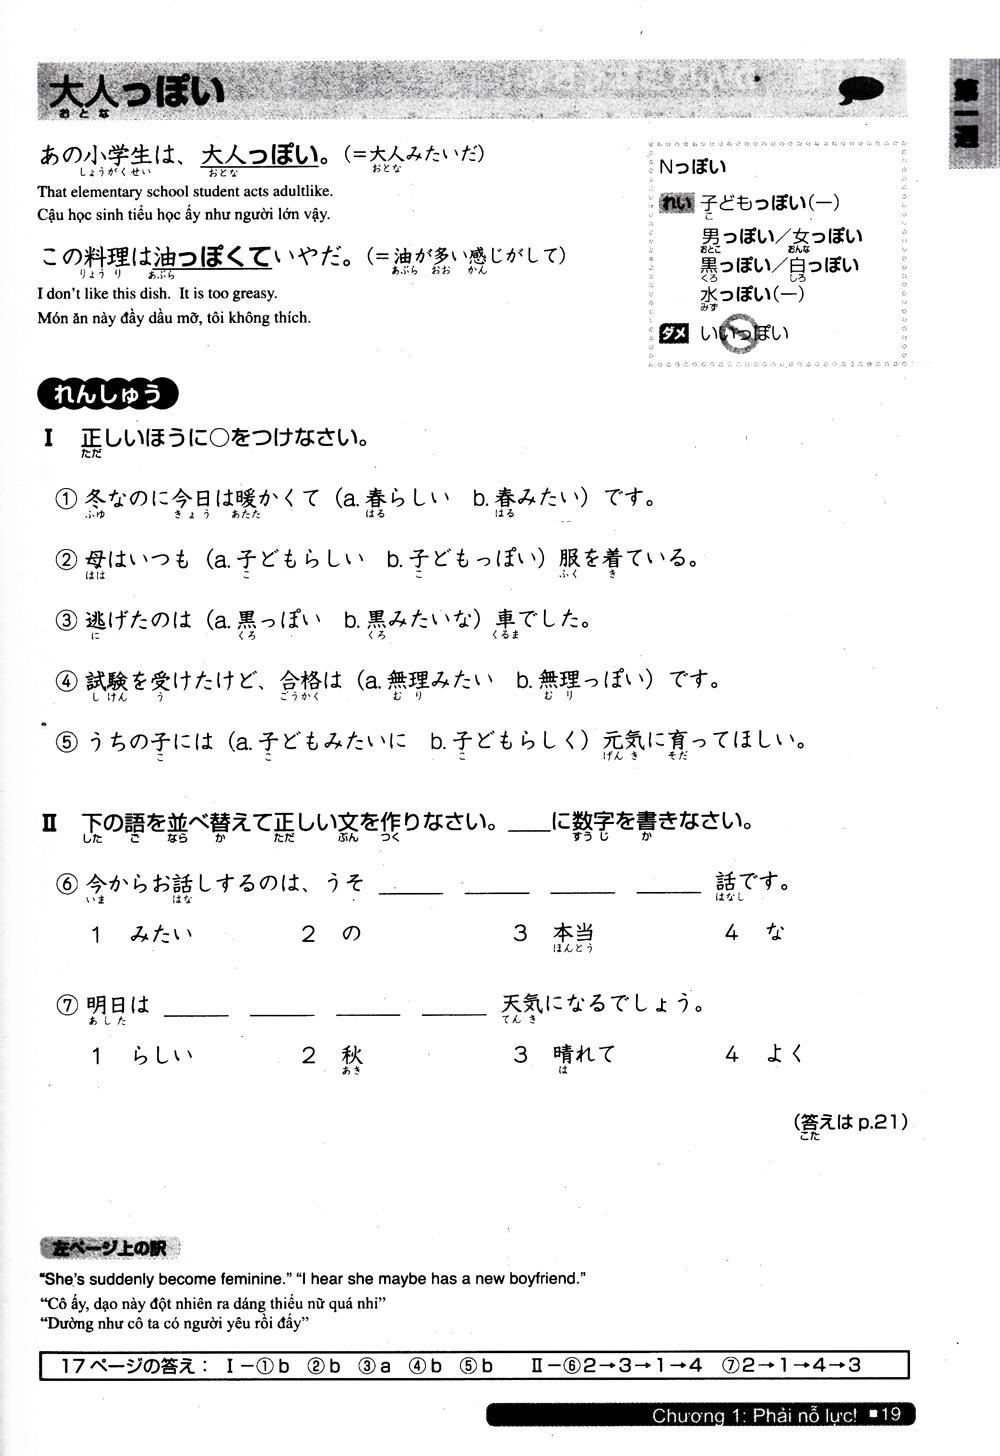 大人っぽい
おとな
第一週
あの小学生は、大人っぽい。(=大人みたいだ)
しょうがくせい おとな おとな
That elementary school student acts adultlike.
Cậu học sinh tiểu học ấy như người lớn vậy.
この料理は油っぽくていやだ。(=油が多い感じがして)
りょうり あぶら あぶら おお かん
I don't like this dish. It is too greasy.
Món ăn này đầy dầu mỡ, tôi không thích.
Nっぽい
れい 子どもっぽい(ー)
こ
男っぽい/女っぽい
おとこ おんな
黒っぽい/白っぽい
くろ しろ
水っぽい(ー)
みず
ダメ いいっぽい
れんしゅう
I 正しいほうに○をつけなさい。
ただ
① 冬なのに今日は暖かくて(a.春らしい b.春みたい)です。
ふゆ きょう あたた はる はる
② 母はいつも(a.子どもらしい b.子どもっぽい)服を着ている。
はは こ こ ふく き
③ 逃げたのは(a.黒っぽい b.黒みたいな)車でした。
に くろ くろ くるま
④ 試験を受けたけど、合格は(a.無理みたい b.無理っぽい)です。
しけん う ごうかく むり むり
⑤ うちの子には(a.子どもみたいに b.子どもらしく)元気に育ってほしい。
こ こ こ げんき そだ
II 下の語を並べ替えて正しい文を作りなさい。____に数字を書きなさい。
した ご なら か ただ ぶん つく すうじ か
⑥ 今からお話しするのは、うそ ____ ____ ____ ____ 話です。
いま はな はなし
1 みたい 2 の 3 本当 4 な
ほんとう
⑦ 明日は ____ ____ ____ ____ 天気になるでしょう。
あした てんき
1 らしい 2 秋 3 晴れて 4 よく
あき は
(答えは p.21)
こた
左ページ上の訳
"She's suddenly become feminine." "I hear she maybe has a new boyfriend."
"Cô ấy, dạo này đột nhiên ra dáng thiếu nữ quá nhỉ"
"Dường như cô ta có người yêu rồi đấy"
17ページの答え: I-①b ②b ③a ④b ⑤b II-⑥2→3→1→4 ⑦2→1→4→3
Chương 1: Phải nỗ lực! ■19